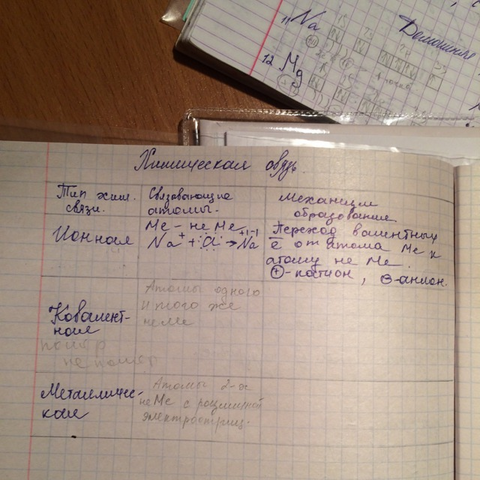 11 Na
12 Mg
Домашнее
Химическая связь
Тип хим. связи.
Связывающие атомы.
Механизм образование
Ионная
Me - не Me
Na + Cl → Na +1 -1
Переход валентных
ē от атома Me к
атому не Me.
⊕-катион, ⊖-анион.
Ковалент-
ная
поляр
неполяр
Атомы одного
и того же
неMe
Металличес-
кая
Атомы 2-х
неMe с различной
электроотриц.